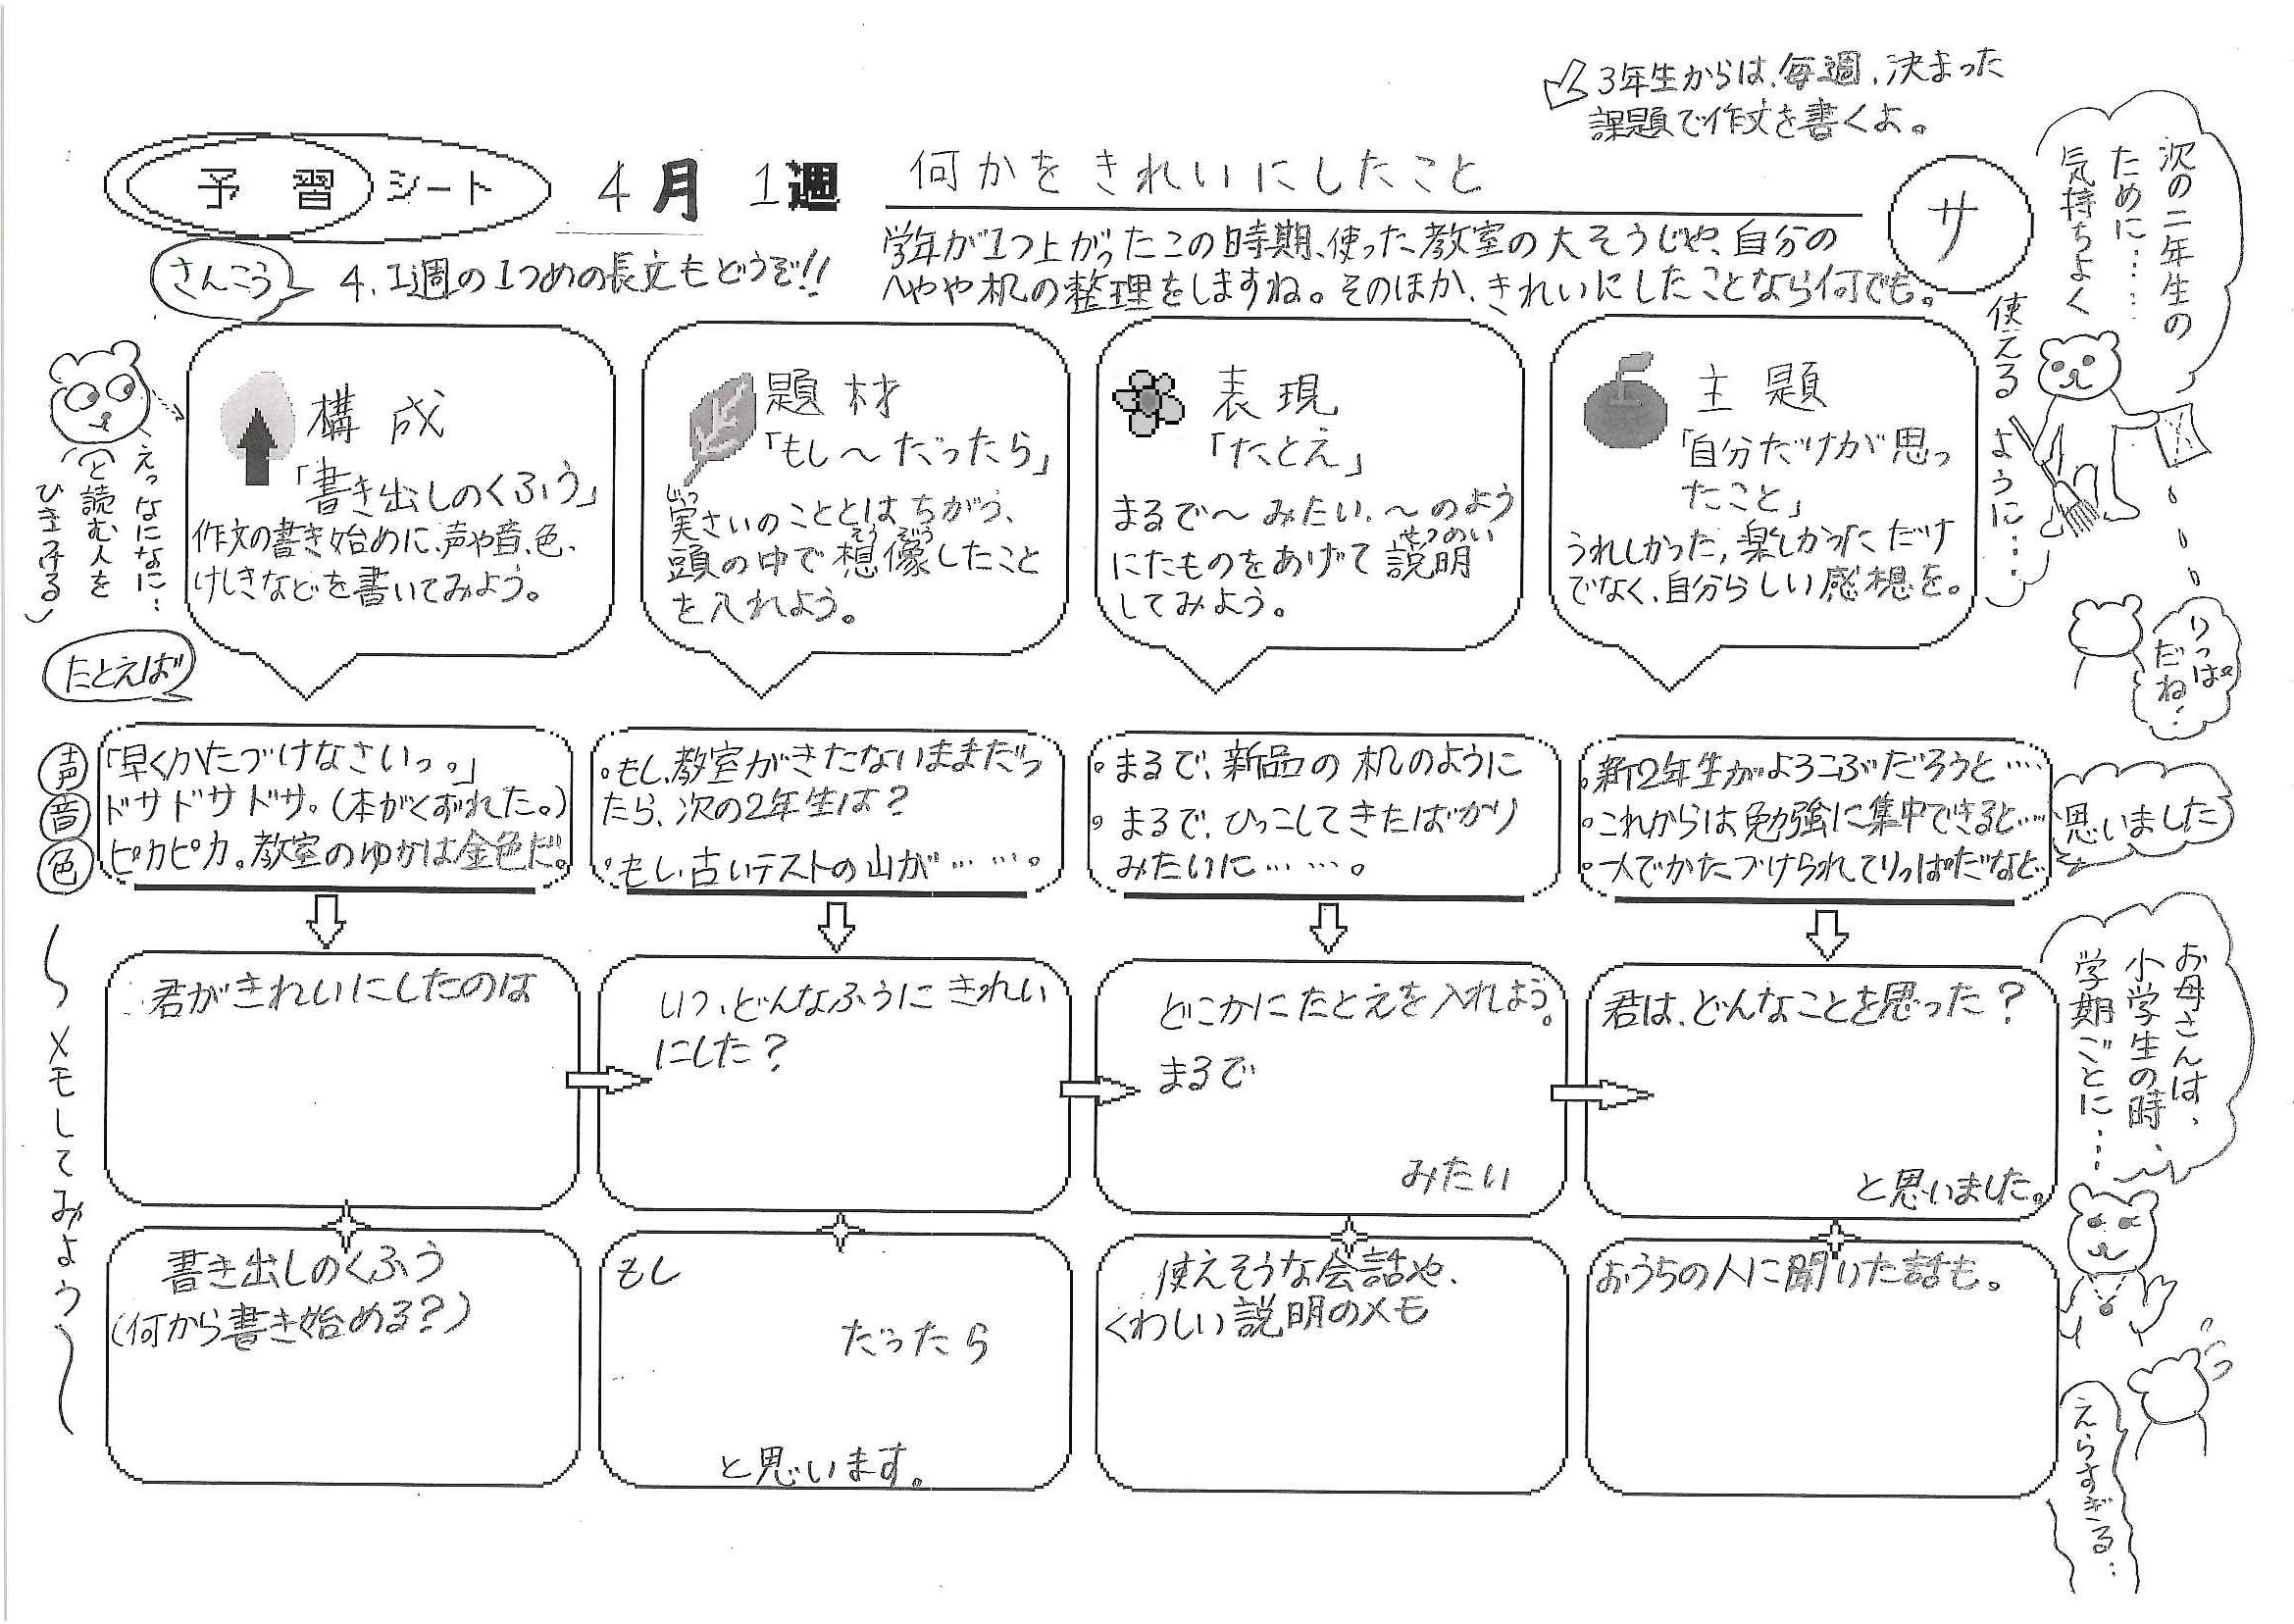 ↙3年生からは、毎週、決まった
課題で作文を書くよ。
予習シート
4月 1週
何かをきれいにしたこと
サ
さんこう
4.1週の1つめの長文もどうぞ!!
学年が1つ上がったこの時期、使った教室の大そうじや、自分の
へやや机の整理をしますね。そのほか、きれいにしたことなら何でも。
次の二年生の
ために……
気持ちよく
使えるように…
りっぱ
だね?
えっなになに…
と読む人を
ひきつける
構成
「書き出しのくふう」
作文の書き始めに、声や音、色、
けしきなどを書いてみよう。
題材
「もし〜だったら」
じっ
実さいのこととはちがう、
そうぞう
頭の中で想像したこと
を入れよう。
表現
「たとえ」
まるで〜みたい、〜のよう
せつめい
にたものをあげて説明
してみよう。
主題
「自分だけが思っ
たこと」
うれしかった、楽しかっただけ
でなく、自分らしい感想を。
たとえば
声
音
色
「早くかたづけなさいっ。」
ドサドサドサ。(本がくずれた。)
ピカピカ。教室のゆかは金色だ。
。もし、教室がきたないままだっ
たら、次の2年生は?
。もし、古いテストの山が……。
。まるで、新品の机のように
。まるで、ひっこしてきたばかり
みたいに……。
。新2年生がよろこぶだろうと…
。これからは勉強に集中できると…
。一人でかたづけられてりっぱだなと
思いました
〜メモしてみよう〜
君がきれいにしたのは
いつ、どんなふうにきれい
にした?
どこかにたとえを入れよう。
まるで
みたい
君は、どんなことを思った?
と思いました。
書き出しのくふう
(何から書き始める?)
もし
だったら
と思います。
使えそうな会話や、
くわしい説明のメモ
おうちの人に聞いた話も。
お母さんは、
小学生の時、
学期ごとに…
えらすぎる…